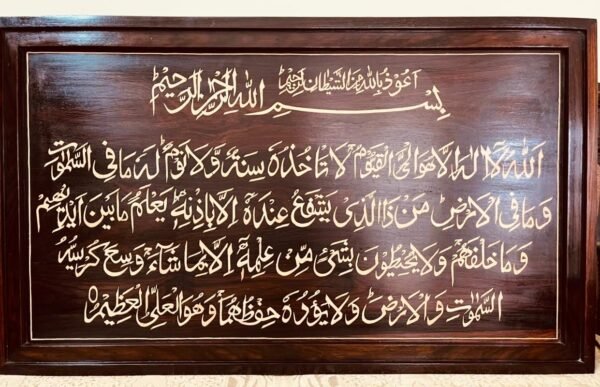 اَعُوْذُ بِاللّٰهِ مِنَ الشَّيْطَانِ الرَّجِيْمِ
بِسْمِ اللّٰهِ الرَّحْمٰنِ الرَّحِيْمِ
اَللّٰهُ لَآ اِلٰهَ اِلَّا هُوَ الْحَىُّ الْقَيُّوْمُ لَا تَاْخُذُهٗ سِنَةٌ وَّلَا نَوْمٌ لَهٗ مَا فِى السَّمٰوٰتِ
وَمَا فِى الْاَرْضِ مَنْ ذَا الَّذِىْ يَشْفَعُ عِنْدَهٗٓ اِلَّا بِاِذْنِهٖ يَعْلَمُ مَا بَيْنَ اَيْدِيْهِمْ
وَمَا خَلْفَهُمْ وَلَا يُحِيْطُوْنَ بِشَىْءٍ مِّنْ عِلْمِهٖٓ اِلَّا بِمَا شَآءَ وَسِعَ كُرْسِيُّهُ
السَّمٰوٰتِ وَالْاَرْضَ وَلَا يَئُوْدُهٗ حِفْظُهُمَا وَهُوَ الْعَلِىُّ الْعَظِيْمُ